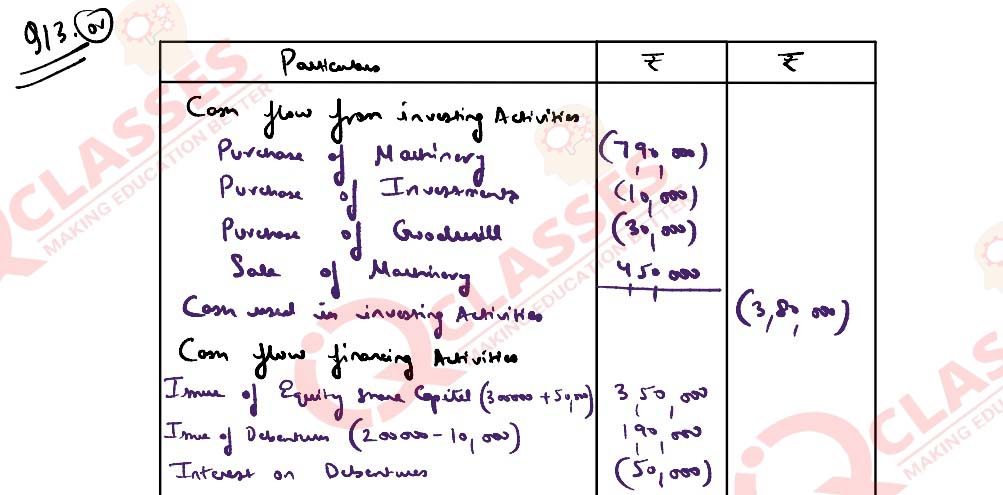 913. or
Particulars ₹ ₹
Cash flow from investing Activities
Purchase of Machinery (7,90,000)
Purchase of Investments (10,000)
Purchase of Goodwill (30,000)
Sale of Machinery 4,50,000
Cash used in investing Activities (3,80,000)
Cash flow financing Activities
Issue of Equity share Capital (300000 + 50,000) 3,50,000
Issue of Debentures (200000 - 10,000) 1,90,000
Interest on Debentures (50,000)
CLASSES
MAKING EDUCATION BETTER
CLASSES
MAKING EDUCATION BETTER
CLASSES
MAKING EDU